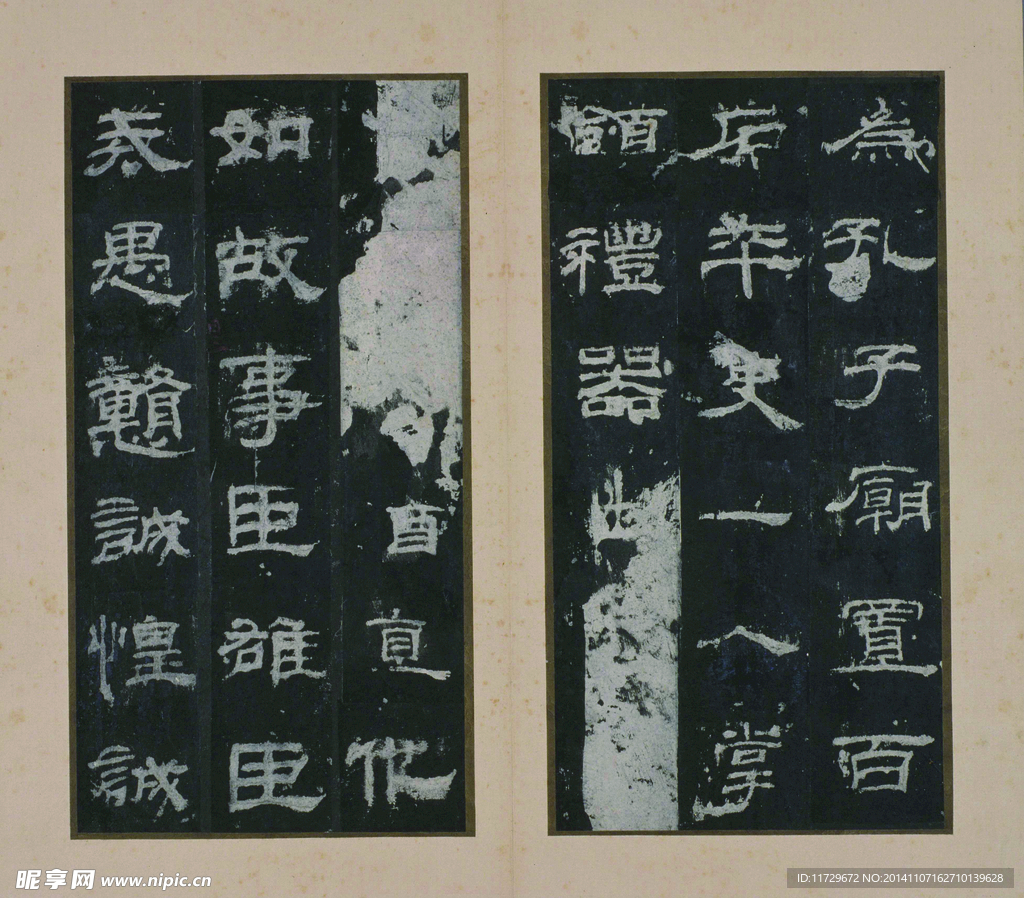 為孔子廟置百
石卒史一人掌
領禮器出
酒直他
如故事臣雄臣
戒愚戇誠惶誠
昵享网 www.nipic.cn
ID:11729672 NO:20141107162710139628